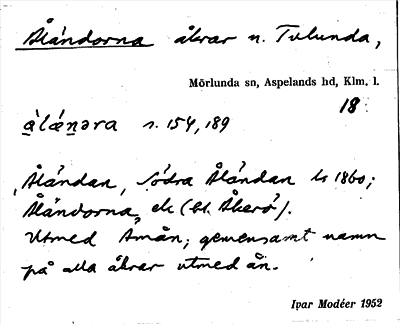 Åländorna åkrar n. Tulunda,
Mörlunda sn, Aspelands hd, Klm. l.
18
s. 154, 189
Åländan, Södra Åländan ls 1860;
Åländorna, ek (bl. Åkerö).
Utmed Amån; gemensamt namn
på alla åkrar utmed ån.
Ivar Modéer 1952